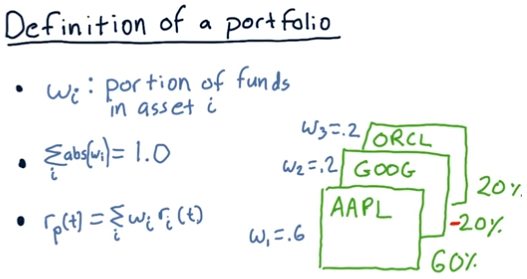 Definition of a portfolio
• wᵢ: portion of funds
in asset i
• ∑ᵢ abs(wᵢ) = 1.0
• rₚ(t) = ∑ᵢ wᵢ rᵢ(t)
w₃=.2 ORCL
w₂=.2 GOOG
w₁=.6 AAPL
20%
-20%
60%